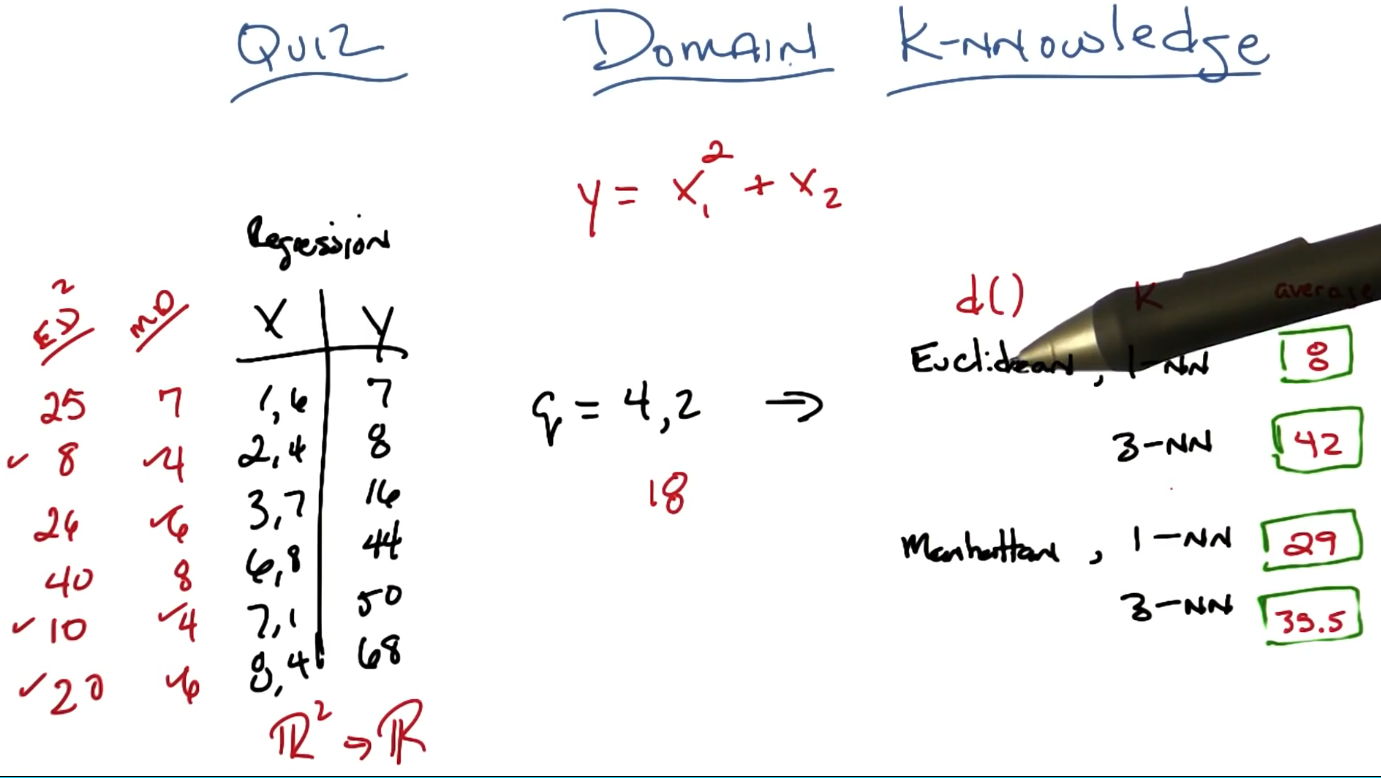 QUIZ DOMAIN K-NNOWLEDGE
y = x₁² + x₂
Regression
ED² MD X Y
25 7 1,6 7
✓ 8 ✓4 2,4 8
26 ✓6 3,7 16
40 8 6,8 44
✓ 10 ✓4 7,1 50
✓ 20 ✓6 8,4 68
ℝ² → ℝ
q = 4,2 ⇒
18
d() K average
Euclidean, 1-NN 8
3-NN 42
Manhattan, 1-NN 29
3-NN 35.5